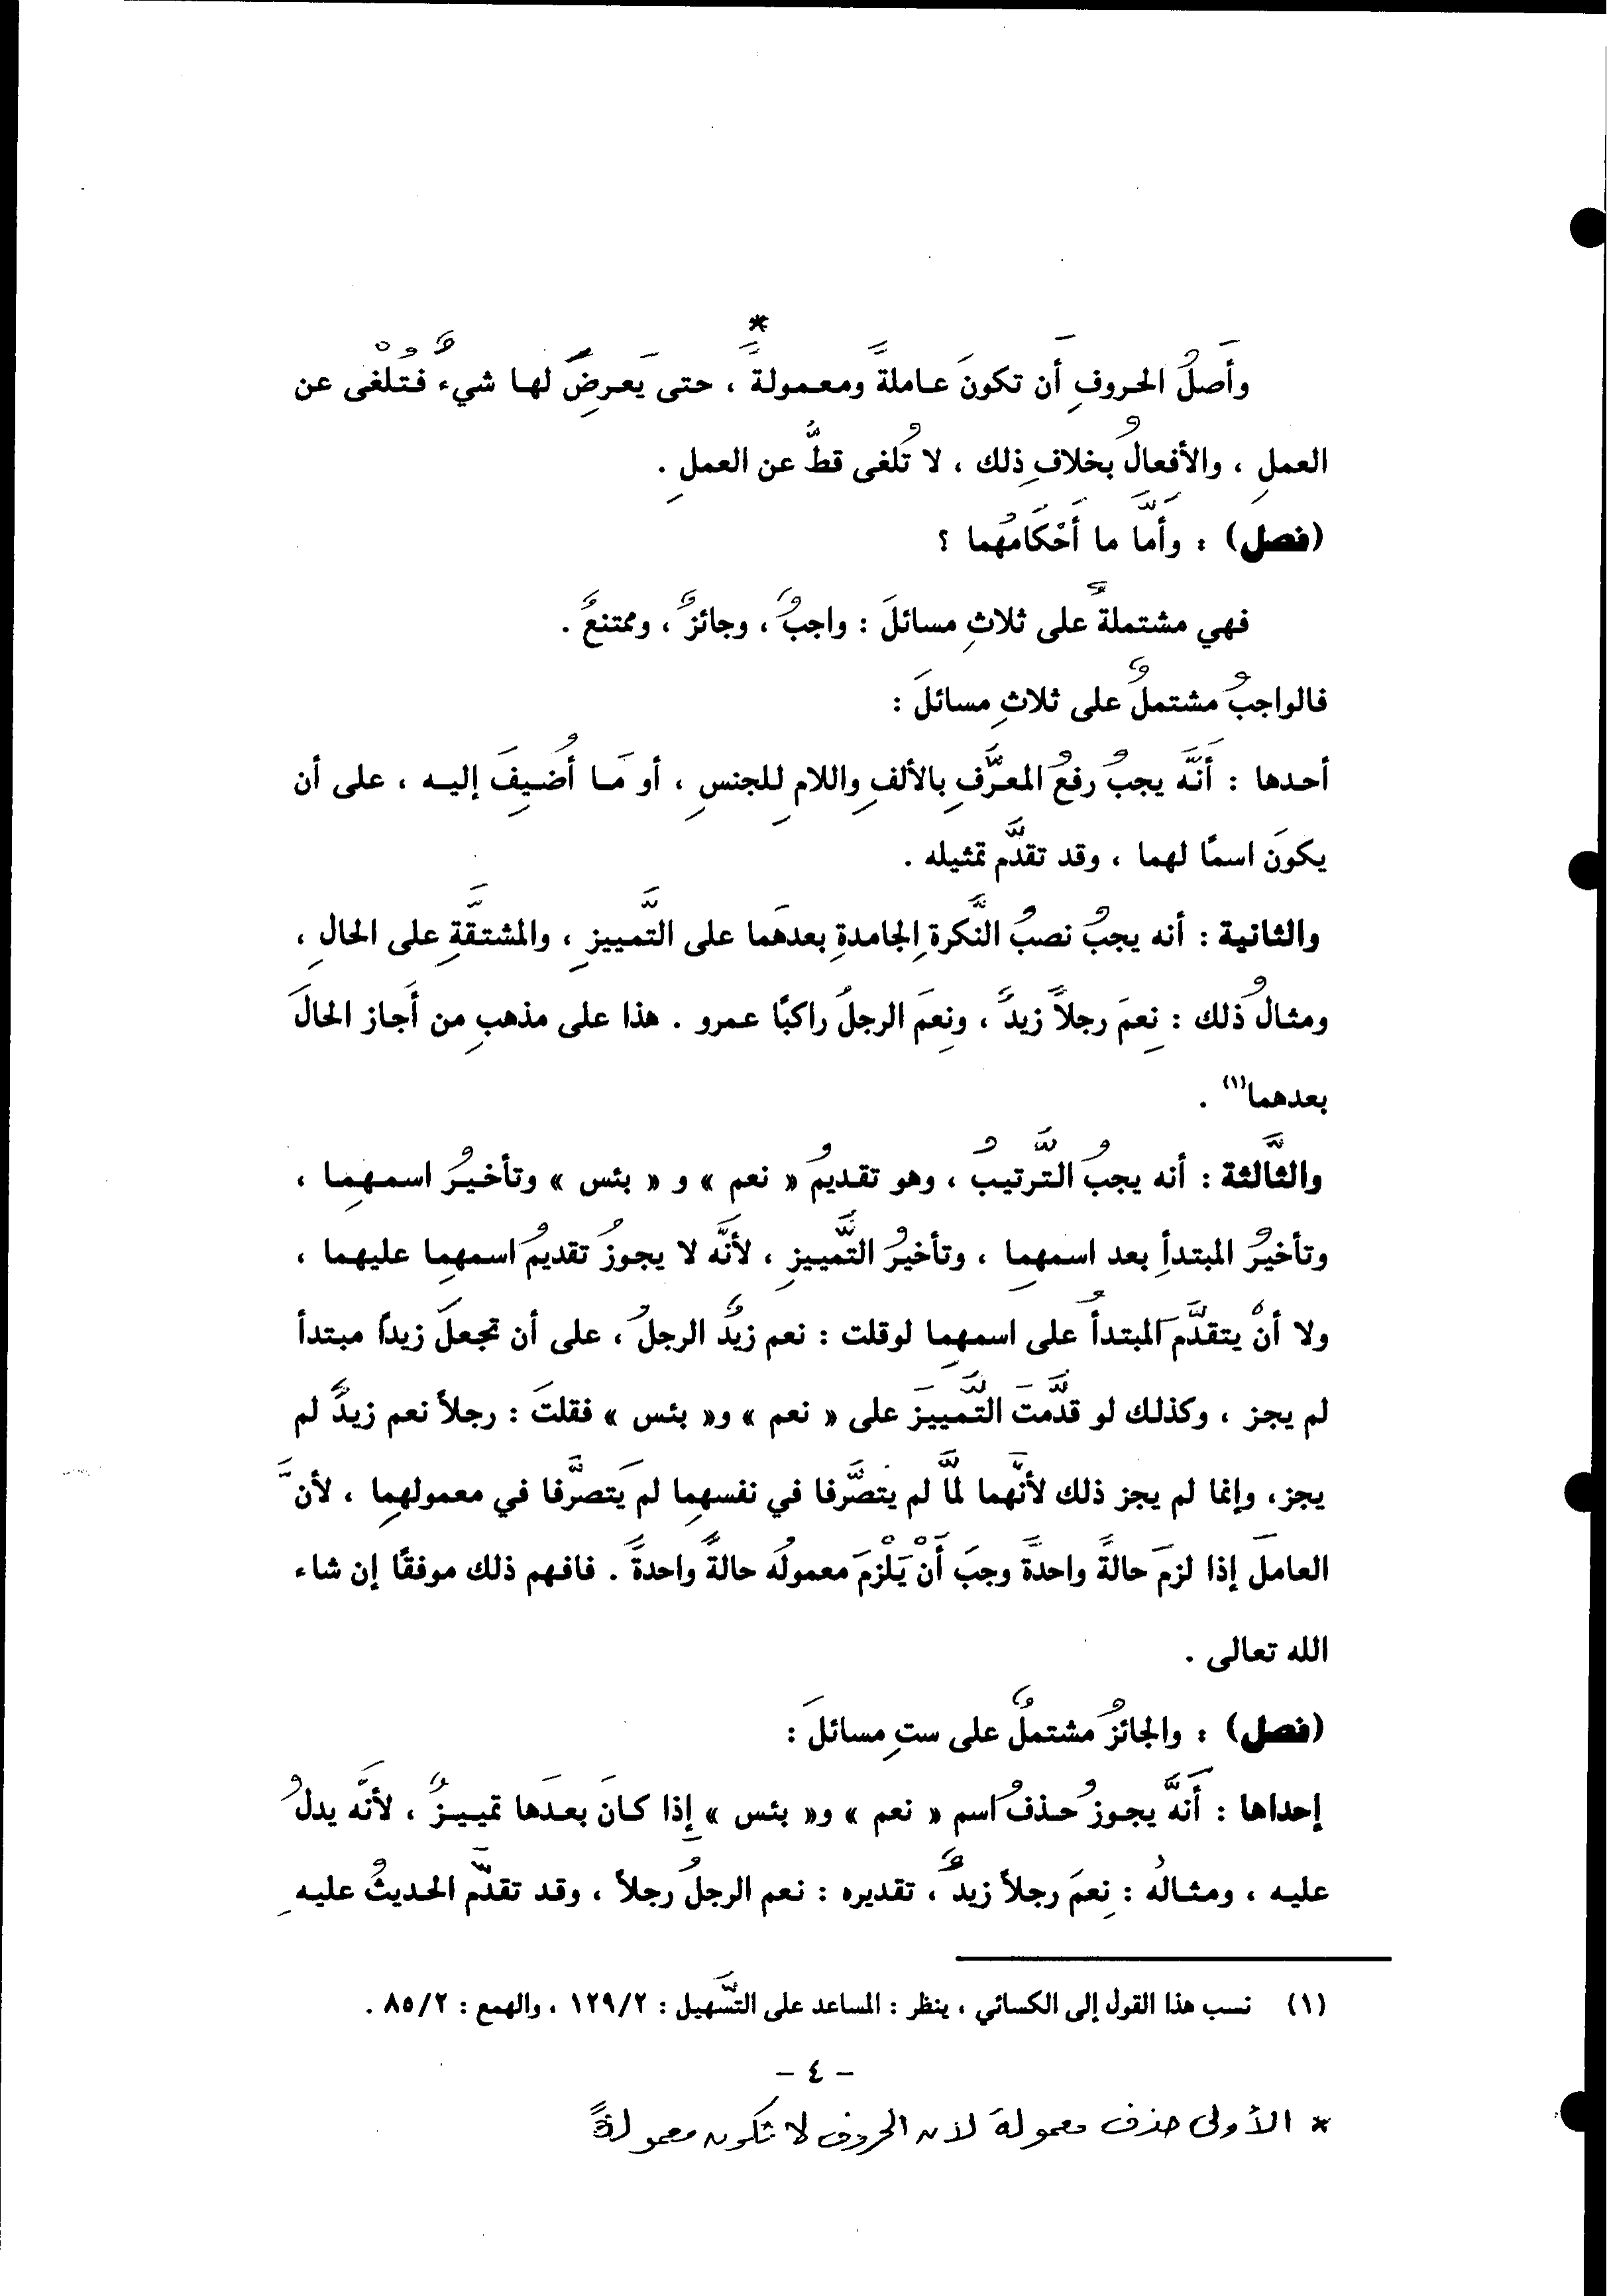 *
وأَصلُ الحروفِ أَن تكونَ عاملةً ومعمولةً ، حتى يَعرِضَ لها شيءٌ فتُلْغى عن
العملِ ، والأفعالُ بخلافِ ذلك ، لا تُلغى قطُّ عن العملِ .
(فصل) : وأمَّا ما أَحْكَامُهُما ؟
فهي مشتملةٌ على ثلاثِ مسائلَ : واجبٌ ، وجائزٌ ، وممتنعٌ .
فالواجبُ مشتملٌ على ثلاثِ مسائلَ :
أحدها : أَنَّه يجبُ رفعُ المعرَّفِ بالألفِ واللامِ للجنسِ ، أو مَا أُضيفَ إليه ، على أن
يكونَ اسمًا لهما ، وقد تقدَّم تمثيله .
والثانية : أنه يجبُ نصبُ النَّكرةِ الجامدةِ بعدهَما على التَّمييزِ ، والمشتقَّةِ على الحالِ ،
ومثالُ ذلك : نِعمَ رجلاً زيدٌ ، ونِعمَ الرجلُ راكبًا عمرو . هذا على مذهبِ من أَجاز الحالَ
بعدهما(١) .
والثَّالثة : أنه يجبُ التَّرتيبُ ، وهو تقديمُ « نعم » و « بئس » وتأخيرُ اسمهِما ،
وتأخيرُ المبتدأِ بعد اسمهِما ، وتأخيرُ التَّمييزِ ، لأنَّه لا يجوزُ تقديمُ اسمهِما عليهما ،
ولا أنْ يتقدَّمَ المبتدأُ على اسمهِما لوقلت : نعم زيدٌ الرجلُ ، على أن تجعلَ زيداً مبتدأ
لم يجز ، وكذلك لو قدَّمتَ التَّمييزَ على « نعم » و« بئس » فقلتَ : رجلاً نعم زيدٌ لم
يجز، وإنما لم يجز ذلك لأنَّهما لمَّا لم يَتصَّرفا في نفسهِما لم يَتصَّرفا في معمولهِما ، لأنَّ
العاملَ إذا لزمَ حالةً واحدةً وجبَ أَنْ يَلْزمَ معمولُه حالةً واحدةً . فافهم ذلك موفقًا إن شاء
الله تعالى .
(فصل) : والجائزُ مشتملٌ على ستِ مسائلَ :
إحداها : أَنَّه يجوزُ حذفُ اسم « نعم » و« بئس » إِذا كانَ بعدَها تمييزٌ ، لأنَّه يدلُ
عليه ، ومثالُه : نِعمَ رجلاً زيدٌ ، تقديره : نعم الرجلُ رجلاً ، وقد تقدَّم الحديثُ عليهِ
(١) نسب هذا القول إلى الكسائي ، ينظر : المساعد على التَّسهيل : ١٢٩/٢ ، والهمع : ٨٥/٢ .
– ٤ –
* الأولى حذف معمولة لان الحروف لا تكون معمولةً